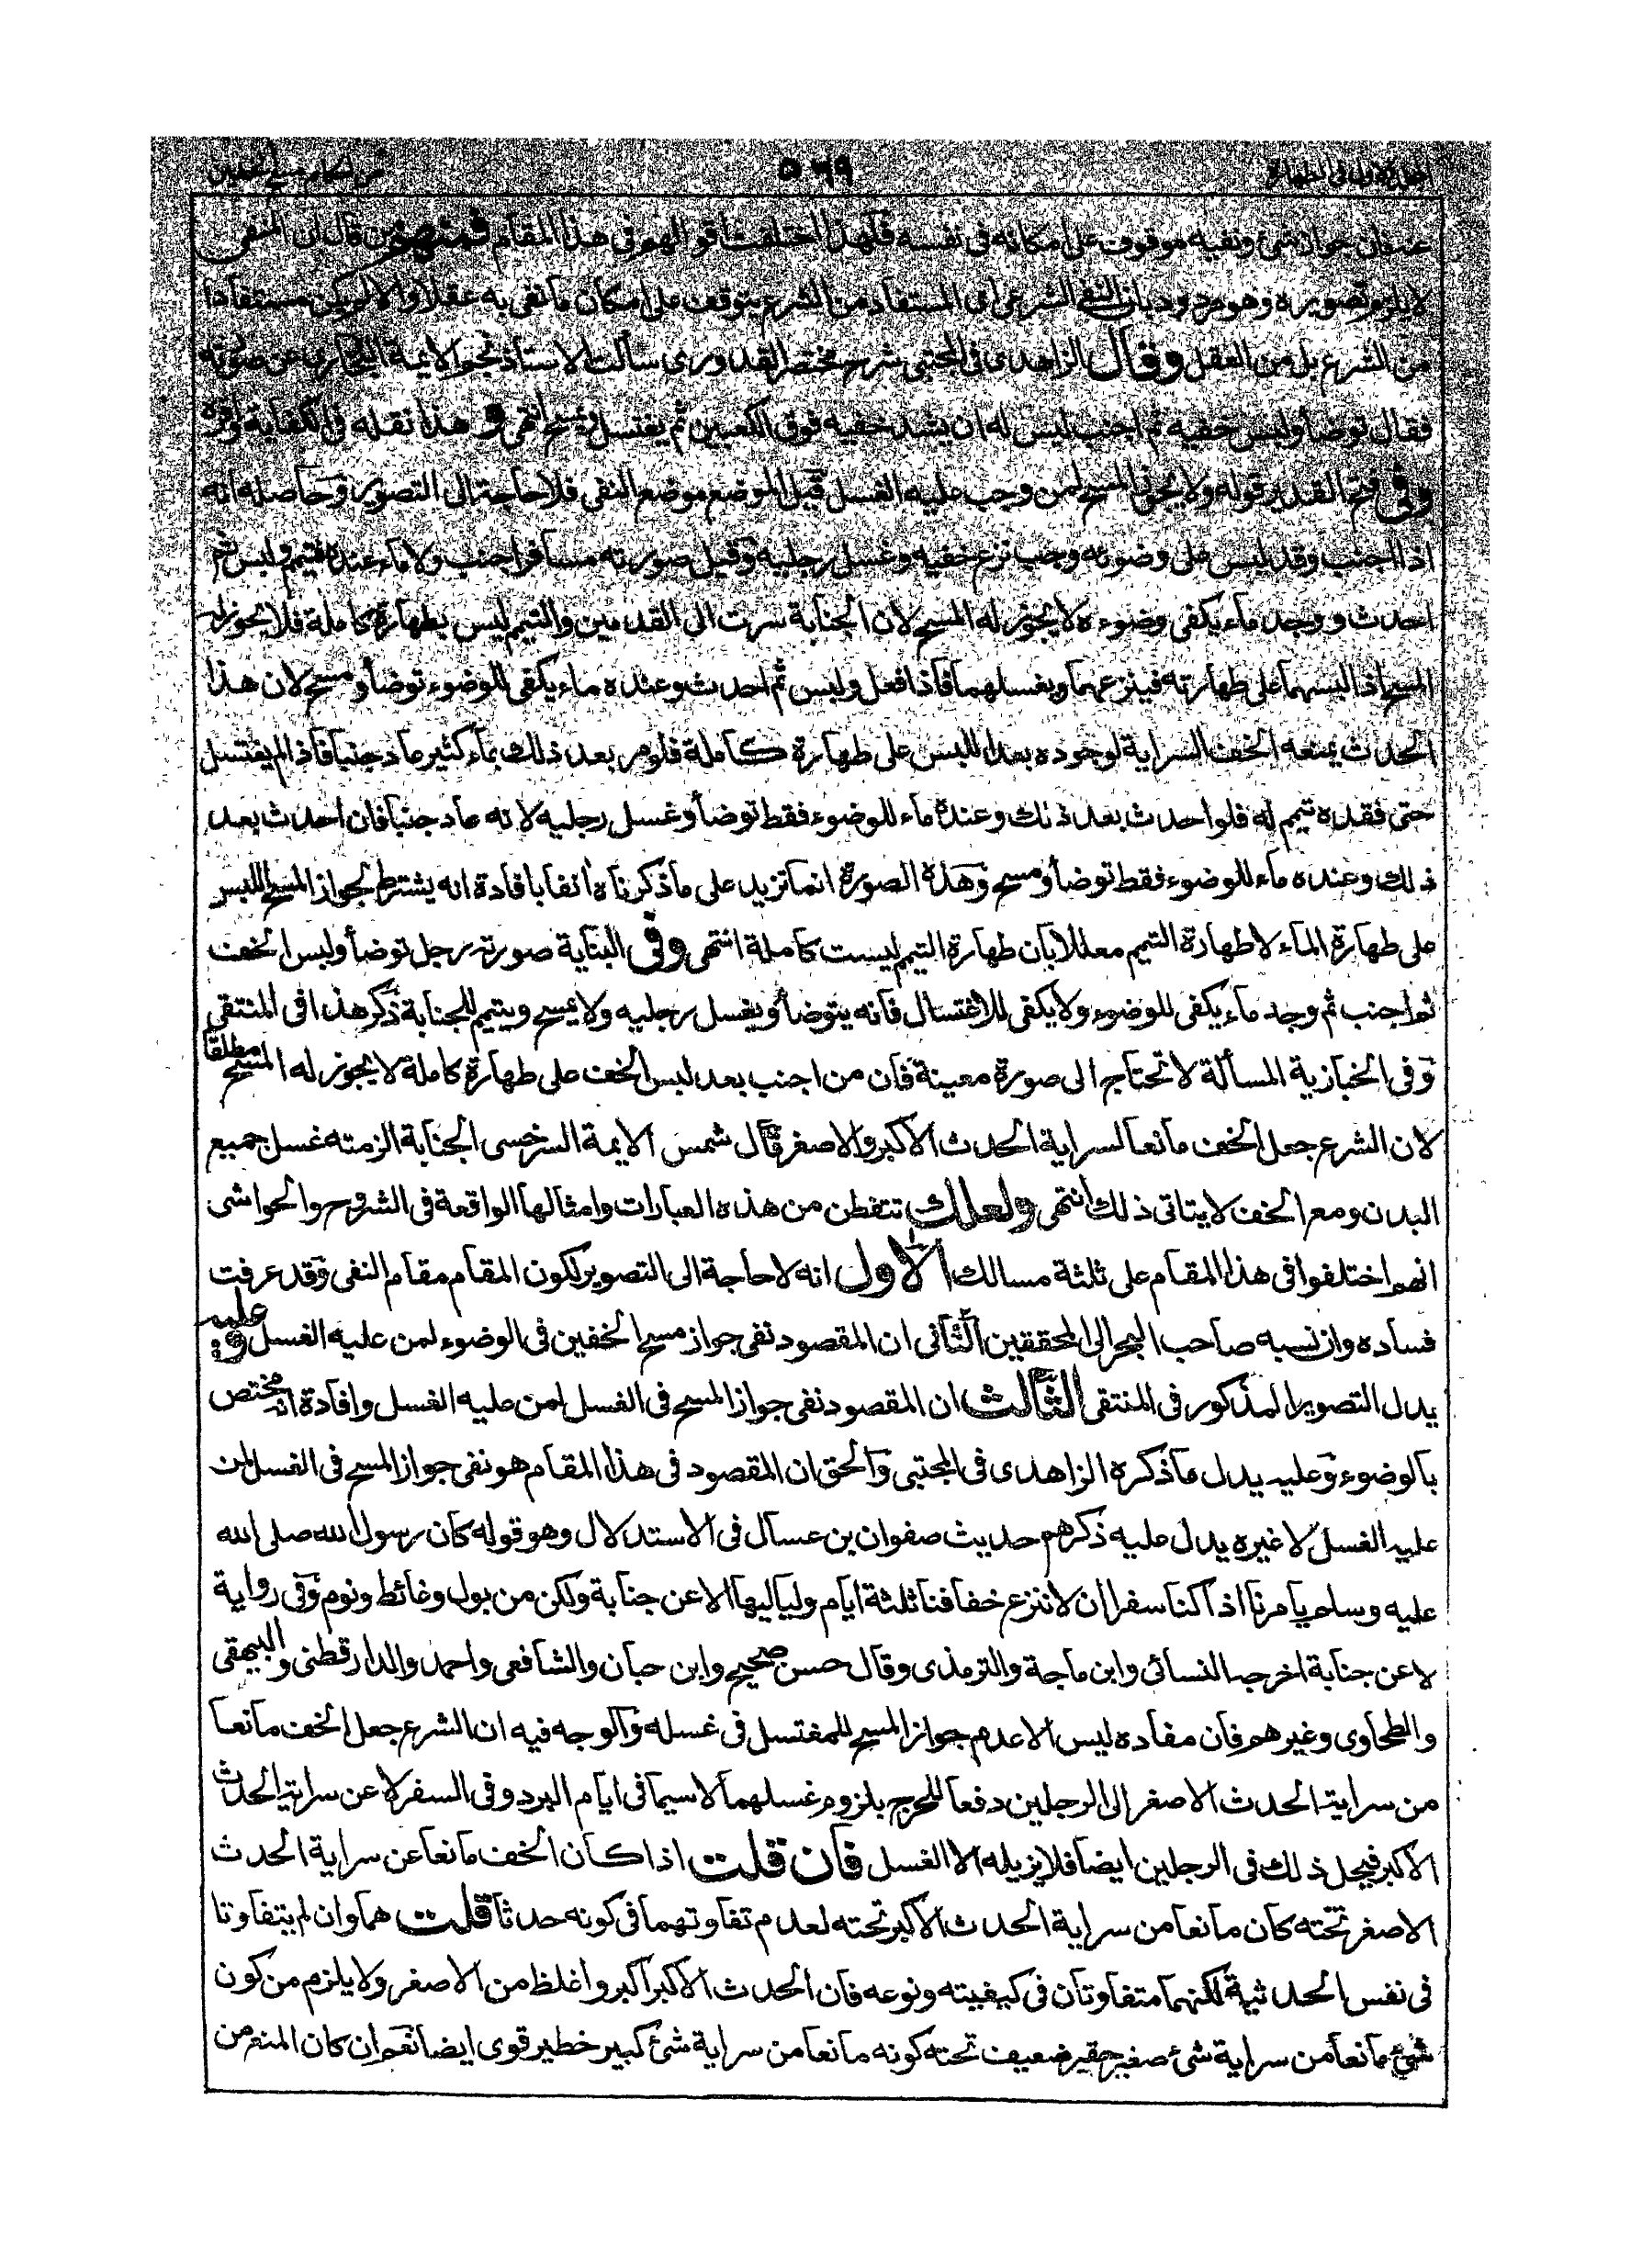 ٥٦٩
عنه فان جواز شئ ونفيه موقوف على امكانه في نفسه فلهذا اختلفت اقوالهم في هذا المقام فمنهم من قال ان المنفى
لا يلزم تصويره وهو مردود بان النفى الشرعى اى المستفاد من الشرع يتوقف على امكان ما نفى به عقلا والا لم يكن مستفادا
من الشرع بل من العقل وقال الزاهدى في المجتبى شرح مختصر القدورى سألت الاستاذ نجم الايمة البخارى عن صورته
فقال توضأ ولبس خفيه ثم اجنب ليس له ان يشد خفيه فوق الكعبين ثم يغتسل ويمسح انتهى وهذا نقله في الكفاية واقره
وفى فتح القدير قوله ولا يجوز المسح لمن وجب عليه الغسل قيل الموضع موضع النفى فلا حاجة الى التصوير وحاصله انه
اذا اجنب وقد لبس على وضوئه وجب نزع خفيه وغسل رجليه وقيل صورته مسافر اجنب ولا ماء عنده فتيمم ولبس ثم
احدث ووجد ماء يكفى وضوءه لا يجوز له المسح لان الجنابة سرت الى القدمين والتيمم ليس بطهارة كاملة فلا يجوز له
المسح اذا لبسهما على طهارته فينزعهما ويغسلهما فاذا فعل ولبس ثم احدث وعنده ماء يكفى للوضوء توضأ ومسح لان هذا
الحدث يمنعه الخف السراية لوجوده بعد اللبس على طهارة كاملة فلو مر بعد ذلك بماء كثير عاد جنبا فاذا لم يغتسل
حتى فقده تيمم له فلو احدث بعد ذلك وعنده ماء للوضوء فقط توضأ وغسل رجليه لانه عاد جنبا فان احدث بعد
ذلك وعنده ماء للوضوء فقط توضأ ومسح وهذه الصورة انما تزيد على ما ذكرناه آنفا بافادة انه يشترط لجواز المسح اللبس
على طهارة الماء لا طهارة التيمم معللا بان طهارة التيمم ليست كاملة انتهى وفى البناية صورته رجل توضأ ولبس الخف
ثم اجنب ثم وجد ماء يكفى للوضوء ولا يكفى للاغتسال فانه يتوضأ ويغسل رجليه ولا يمسح ويتيمم للجنابة ذكر هذا فى المنتقى
وفى الخبازية المسألة لا تحتاج الى صورة معينة فان من اجنب بعد لبس الخف على طهارة كاملة لا يجوز له المسح مطلقا
لان الشرع جعل الخف مانعا لسراية الحدث الاكبر والاصغر قال شمس الايمة السرخسى الجنابة الزمته غسل جميع
البدن ومع الخف لا يتاتى ذلك انتهى ولعلك تتفطن من هذه العبارات وامثالها الواقعة فى الشروح والحواشى
انهم اختلفوا فى هذا المقام على ثلثة مسالك الاول انه لا حاجة الى التصوير لكون المقام مقام النفى وقد عرفت
فساده وان نسبه صاحب البحر الى المحققين الثانى ان المقصود نفى جواز مسح الخفين فى الوضوء لمن عليه الغسل وعليه
يدل التصوير المذكور فى المنتقى الثالث ان المقصود نفى جواز المسح فى الغسل لمن عليه الغسل وافادة انه مختص
بالوضوء وعليه يدل ما ذكره الزاهدى فى المجتبى والحق ان المقصود فى هذا المقام هو نفى جواز المسح فى الغسل لمن
عليه الغسل لا غيره يدل عليه ذكرهم حديث صفوان بن عسال فى الاستدلال وهو قوله كان رسول الله صلى الله
عليه وسلم يامرنا اذا كنا سفرا ان لا ننزع خفافنا ثلثة ايام ولياليها الا عن جنابة ولكن من بول وغائط ونوم وفى رواية
لا عن جنابة اخرجه النسائى وابن ماجة والترمذى وقال حسن صحيح وابن حبان والشافعى واحمد والدارقطنى والبيهقى
والطحاوى وغيرهم فان مفاده ليس الا عدم جواز المسح للمغتسل فى غسله والوجه فيه ان الشرع جعل الخف مانعا
من سراية الحدث الاصغر الى الرجلين دفعا للحرج بلزوم غسلهما لا سيما فى ايام البرد وفى السفر لا عن سراية الحدث
الاكبر فيحل ذلك فى الرجلين ايضا فلا يزيله الا الغسل فان قلت اذا كان الخف مانعا عن سراية الحدث
الاصغر تحته كان مانعا من سراية الحدث الاكبر تحته لعدم تفاوتهما فى كونه حدثا قلت هما وان لم يتفاوتا
فى نفس الحدثية لكنهما متفاوتان فى كيفيته ونوعه فان الحدث الاكبر اكبر واغلظ من الاصغر ولا يلزم من كون
شئ مانعا من سراية شئ صغير حقير ضعيف تحته كونه مانعا من سراية شئ كبير خطير قوى ايضا نعم ان كان المنع من